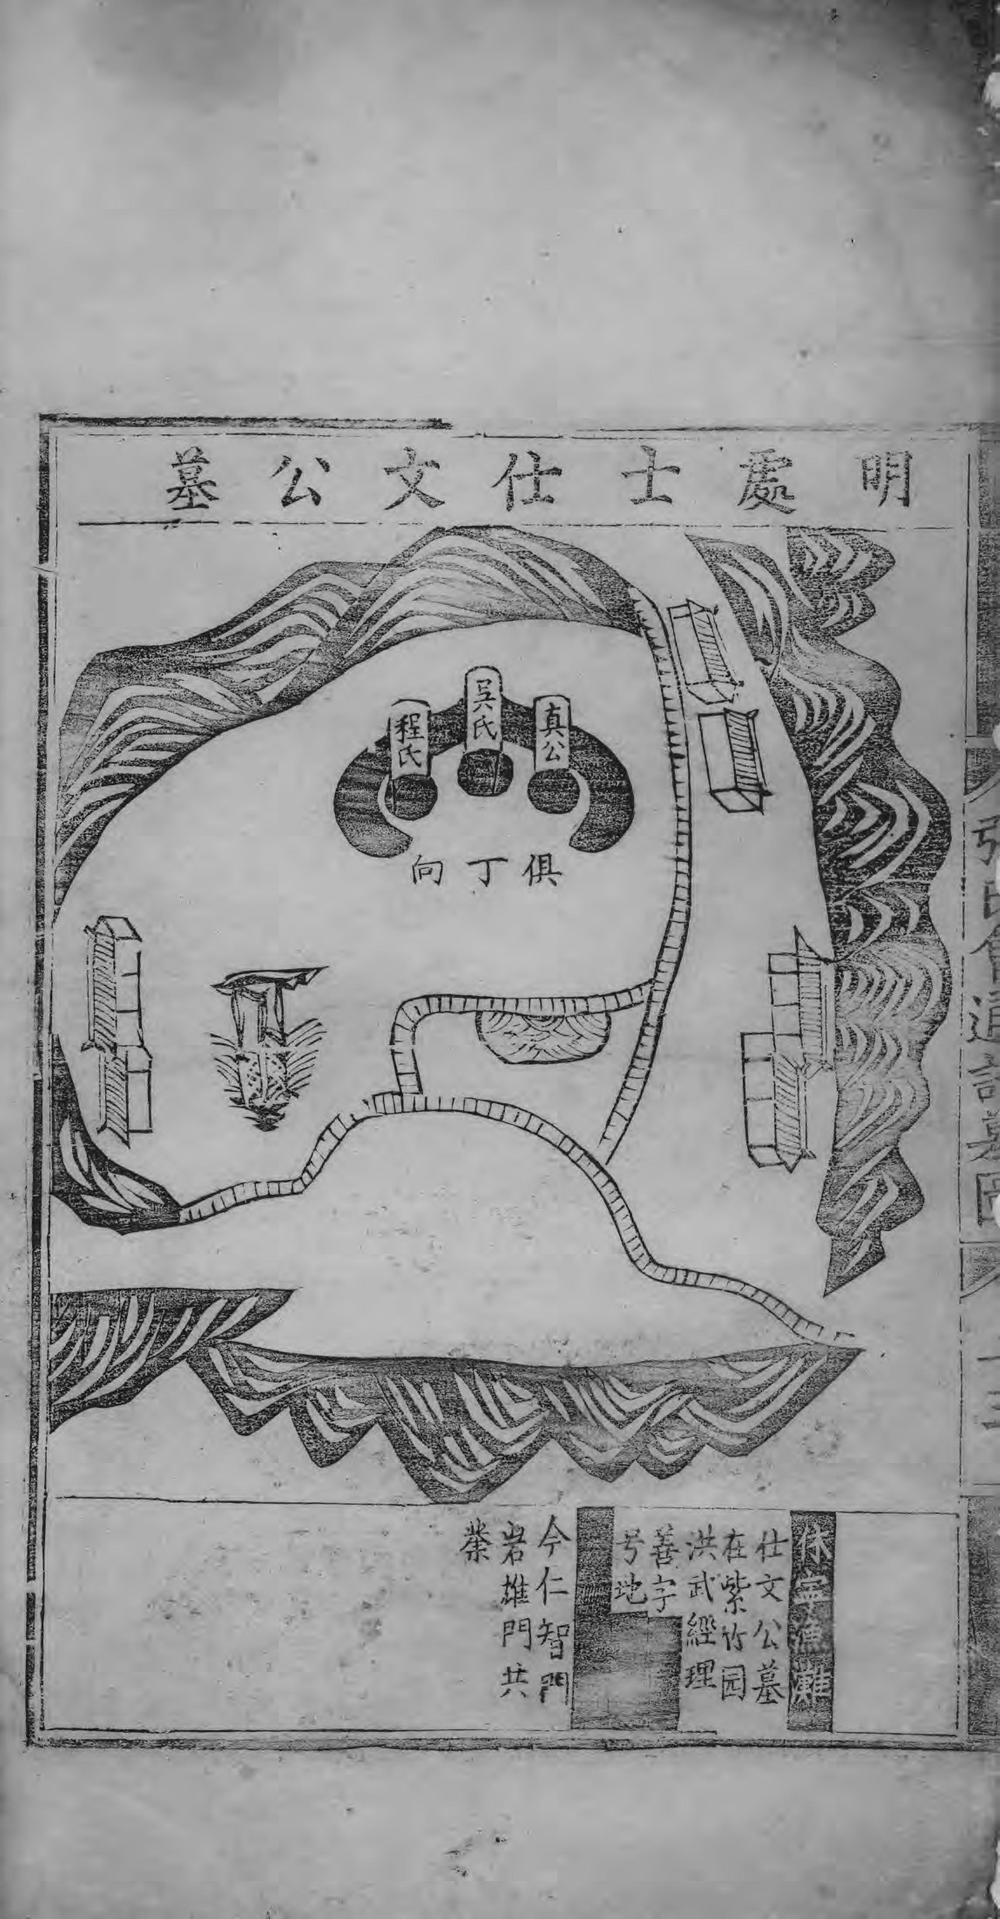 明處士仕文公墓
真公
吳氏
程氏
俱丁向
休寧漁灘
仕文公墓
在紫竹园
洪武經理
善字
号地
今仁智門
岩雄門共
業
張氏會通譜墓圖
十二